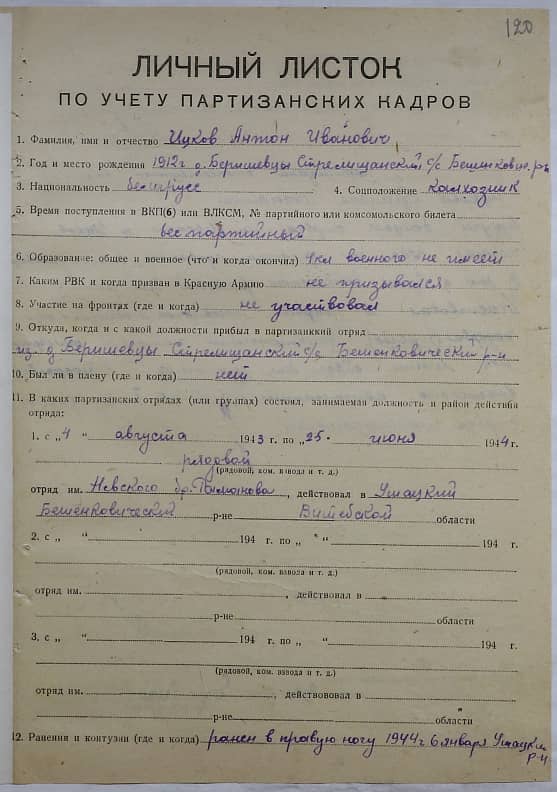 120
ЛИЧНЫЙ ЛИСТОК
ПО УЧЕТУ ПАРТИЗАНСКИХ КАДРОВ
1. Фамилия, имя и отчество Цуков Антон Иванович
2. Год и место рождения 1912 г д. Беришевцы Стрелищанский с/с Бешенкович. р-н
3. Национальность белорусс 4. Соцположение колхозник
5. Время поступления в ВКП(б) или ВЛКСМ, № партийного или комсомольского билета
беспартийный
6. Образование: общее и военное (что и когда окончил) 1 кл военного не имеет
7. Каким РВК и когда призван в Красную Армию не призывался
8. Участие на фронтах (где и когда) не участвовал
9. Откуда, когда и с какой должности прибыл в партизанский отряд
из д Беришевцы Стрелищанский с/с Бешенковический р-н
10. Был ли в плену (где и когда) нет
11. В каких партизанских отрядах (или группах) состоял, занимаемая должность и район действия
отряда:
1. с „4 “ августа 1943 г. по „25. июня 1944 г.
рядовой
(рядовой, ком. взвода и т. д.)
отряд им. Невского бр. , действовал в Ушацкий
Бешенковический р-не Витебской области
2. с „ “ 194 г. по „ “ 194 г.
(рядовой, ком. взвода и т. д.)
отряд им. , действовал в
р-не области
3. с „ “ 194 г. по „ “ 194 г.
(рядовой, ком. взвода и т. д.)
отряд им. , действововал в
р-не области
12. Ранения и контузии (где и когда) ранен в правую ногу 1944 г 6 января Ушацкий
р-н